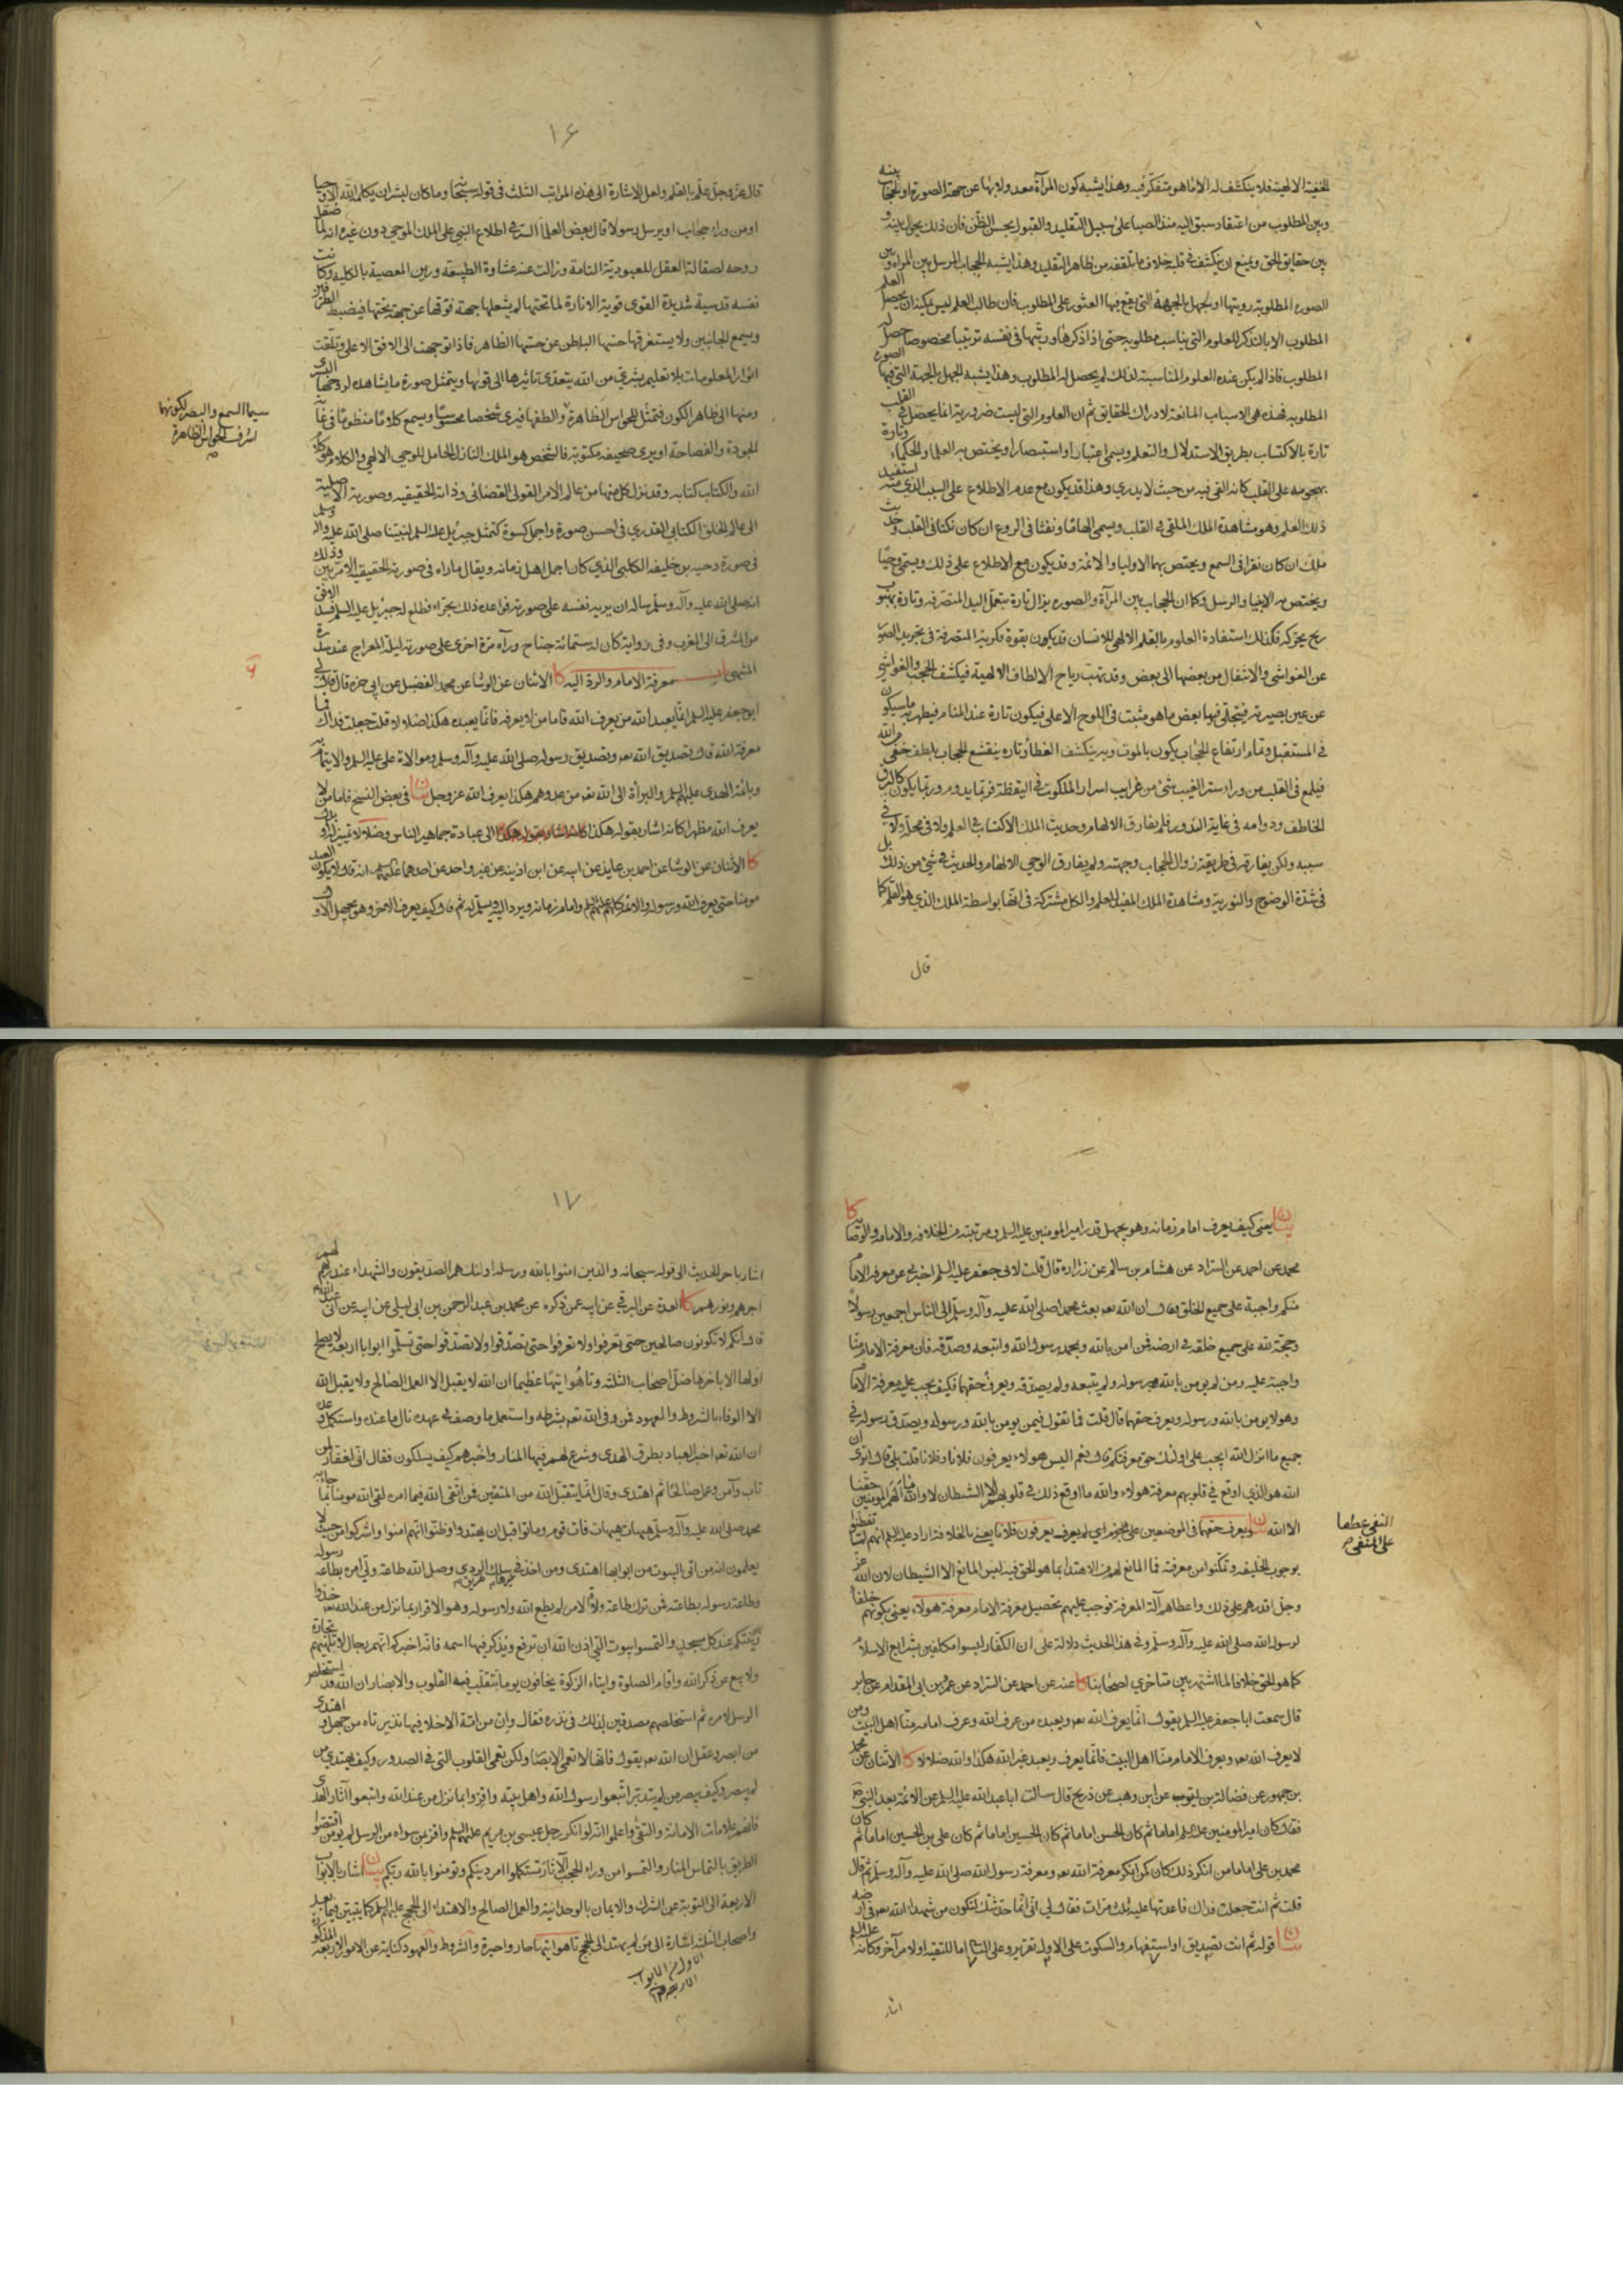 الخفية الالهية فلا ينكشف له الا ما هو متفكر فيه وهذا يشبه كون المرآة معدولا بها عن جهة الصورة او لحجاب بينه
وبين المطلوب من اعتقاد سبق اليه منذ الصبا على سبيل التقليد والقبول بحسن الظن فان ذلك يحول بينه و
بين حقايق الحق ويمنع ان ينكشف في قلبه خلاف ما تلقفه من ظاهر التقليد وهذا يشبه الحجاب المرسل بين المرآه وبين
الصوره المطلوبة رويتها او لجهل بالجهة التي يقع فيها العثور على المطلوب فان طالب العلم ليس يمكنه ان يحصل العلم
المطلوب الا بالتذكر للعلوم التي يناسب مطلوبه حتى اذا ذكرها ورتبها في نفسه ترتيبا مخصوصا حصل له
المطلوب فاذا لم يكن عنده العلوم المناسبة لذلك لم يحصل له المطلوب وهذا يشبه الجهل بالجهة التي فيها الصوره
المطلوبه فهذه هي الاسباب المانعة لادراك الحقايق ثم ان العلوم التي ليست ضرورية انما يحصل في القلب
تارة بالاكتساب بطريق الاستدلال والتعلم ويسمى اعتبارا واستبصارا ويختص به العلماء والحكماء وتارة
بهجومه على القلب كانه القي فيه من حيث لا يدري وهذا قد يكون مع عدم الاطلاع على السبب الذي منه استفيد
ذلك العلم وهو مشاهدة الملك الملقي في القلب ويسمى الهاما ونفثا في الروع ان كان نكتا في القلب وحديث
ملك ان كان نقرا في السمع ويختص بهما الاولياء والائمة وقد يكون مع الاطلاع على ذلك ويسمى وحيا
ويختص به الانبياء والرسل وكما ان الحجاب بين المرآة والصوره يزال تارة بتعمل اليد المتصرفه وتارة بهبوب
ريح يحركه فكذلك استفادة العلوم بالقلم الالهي للانسان قد يكون بقوة فكرية المتصرفة في تجريد الصور
عن الغواشي والانتقال من بعضها الى بعض وقد تهب رياح الالطاف الالهية فيكشف الحجب والغواشي
عن عين بصيرته فيتجلى فيها بعض ما هو مثبت في اللوح الاعلى فيكون تارة عند المنام فيظهر به ما سيكون
في المستقبل وتمام ارتفاع الحجاب يكون بالموت وبه ينكشف الغطاء وتاره ينقشع الحجاب بلطف خفي من الله
فيلمع في القلب من وراء ستر الغيب شئ من غرايب اسرار الملكوت في اليقظة فربما يدوم وربما يكون كالبرق
الخاطف ودوامه في غاية الندور فلم يفارق الالهام وحديث الملك الاكتساب في العلم ولا في محله ولا في
سببه ولكن يفارقه في طريقة زوال الحجاب وجهته ولم يفارق الوحي الالهام والحديث في شئ من ذلك بل
في شدة الوضوح والنورية ومشاهدة الملك المفيد للعلم والكل مشتركة في انها بواسطة الملك الذي هو القلم كما
قال
١٦
قال عز وجل علم بالقلم ولعل الاشارة الى هذه المراتب الثلث في قوله سبحانه وما كان لبشر ان يكلمه الله الا وحيا
او من وراء حجاب او يرسل رسولا قال بعض العلماء السر في اطلاع النبي على الملك الموحي دون غيره انه لما صقل
روحه لصقالة العقل للعبودية التامة وزالت عنه غشاوة الطبيعة ورين المعصية بالكلية وكانت
نفسه قدسية شديدة القوى قوية الانارة لما تحتها لم يشغلها جهة فوقها عن جهة تحتها فيضبط الطرفين
ويسع الجانبين ولا يستغرقها حسها الباطن عن حسها الظاهر فاذا توجهت الى الافق الاعلى وتلقت
انوار المعلومات بلا تعليم بشري من الله يتعدى تاثيرها الى قويها ويتمثل صورة ما يشاهده لروحها البشري
ومنها الى ظاهر الكون فتمثل للحواس الظاهرة والطفها فيرى شخصا محسوسا ويسمع كلاما منظوما في غاية
الجودة والفصاحة او يرى صحيفه مكتوبة فالشخص هو الملك النازل الحامل للوحي الالهي والكلام هو كلام
الله والكتاب كتابه وقد نزل كل منها من عالم الامر القولي القضائي وذاته الحقيقيه وصورته الاصلية
الى عالم الخلق الكتابي القدري في احسن صورة واجمل كسوة كتمثل جبرئيل عليه السلم لنبينا صلى الله عليه واله وسلم
في صورة دحيه بن خليفه الكلبي الذي كان اجمل اهل زمانه ويقال ما راه في صورته الحقيقيه الا مرتين وذلك
انه صلى الله عليه وآله وسلم ساله ان يريه نفسه على صورته فواعده ذلك بحراء فطلع له جبرئيل عليه السلم فسد الافق
من المشرق الى المغرب وفي رواية كان له ستمائة جناح ورآه مرة اخرى على صورته ليلة المعراج عند سدرة
المنتهى باب معرفة الامام والرد اليه كا الاثنان عن الوشا عن محمد الفضيل عن ابي حمزه قال قال لي
ابو جعفر عليه السلم انما يعبد الله من يعرف الله فاما من لا يعرفه فانما يعبده هكذا ضلالا قلت جعلت فداك فما
معرفة الله قال تصديق الله تعه وتصديق رسوله صلى الله عليه وآله وسلم وموالاة علي عليه السلم والايتمام به
وبائمة الهدى عليهم السلم والبراءة الى الله تعه من عدوهم هكذا يعرف الله عز وجل بيان في بعض النسخ فاما من لا
يعرف الله مظهرا كانه اشار بقوله هكذا الى عبادة جماهير الناس وضلالا تمييز له او بدل
كا الاثنان عن الوشا عن احمد بن عايذ عن ابيه عن ابن اذينه عن غير واحد عن احدهما عليهما السلم انه قال لا يكون العبد
مومنا حتى يعرف الله ورسوله والائمة كلهم عليهم السلم وامام زمانه ويرد اليه ويسلم له ثم قال وكيف يعرف الاخر وهو يجهل الاول
سيما السمع والبصر لكونهما
اشرف الحواس الظاهرة
بيان يعني كيف يعرف امام زمانه وهو يجهل قدر امير المومنين عليه السلم ومرتبته من الخلافه والامامه والوصايه كا
محمد عن احمد عن السراد عن هشام بن سالم عن زرارة قال قلت لابي جعفر عليه السلم اخبرني عن معرفة الامام
منكم واجبة على جميع الخلق فقال ان الله تعه بعث محمدا صلى الله عليه وآله وسلم الى الناس اجمعين رسولا
وحجة لله على جميع خلقه في ارضه فمن امن بالله وبمحمد رسول الله واتبعه وصدقه فان معرفة الامام منا
واجبة عليه ومن لم يومن بالله وبرسوله ولم يتبعه ولم يصدقه ويعرف حقهما فكيف يجب عليه معرفة الامام
وهو لا يومن بالله ورسوله ويعرف حقهما قال قلت فما تقول فيمن يومن بالله ورسوله ويصدق رسوله في
جميع ما انزل الله ايجب على اولئك حق معرفتكم قال نعم اليس هولاء يعرفون فلانا وفلانا قلت بلى قال اترى ان
الله هو الذي اوقع في قلوبهم معرفة هولاء والله ما اوقع ذلك في قلوبهم الا الشيطان لا والله ما الهم المومنين حقنا
الا الله بيان ويعرف حقهما في الموضعين
بوجوب الخليفه وتمكنوا من معرفته فما المانع لهم من الاهتداء بما هو الحق فيه ليس المانع الا الشيطان لان الله عز
وجل اقدرهم على ذلك واعطاهم آلة المعرفة فوجب عليهم تحصيل معرفة الامام معرفة هولاء يعني بكونهم خلفاء
لرسول الله صلى الله عليه وآله وسلم وفي هذا الحديث دلالة على ان الكفار ليسوا مكلفين بشرايع الاسلام
كما هو الحق خلافا لما اشتهر بين متاخري اصحابنا كا عنه عن احمد عن السراد عن عمرو بن ابي المقدام عن جابر
قال سمعت ابا جعفر عليه السلم يقول انما يعرف الله تعه ويعبده من عرف الله وعرف امامه منا اهل البيت ومن
لا يعرف الله تعه ويعرف الامام منا اهل البيت فانما يعرف ويعبد غير الله هكذا والله ضلالا كا الاثنان عن محمد
بن جمهور عن فضالة بن ايوب عن ابن وهب عن ذريح قال سالت ابا عبد الله عليه السلم عن الائمة بعد النبي ص
فقال كان امير المومنين عليه السلم اماما ثم كان الحسن اماما ثم كان الحسين اماما ثم كان علي بن الحسين اماما ثم كان
محمد بن علي اماما من انكر ذلك كان كمن انكر معرفة الله تعه ومعرفة رسول الله صلى الله عليه وآله وسلم ثم قال
قلت ثم انت جعلت فداك فاعدتها عليه ثلث مرات فقال لي اني انما حدثتك لتكون من شهداء الله تعه في ارضه
بيان قوله ثم انت تصديق او استفهام والسكوت على الاول تقرير وعلى الثاني اما للتقية او لامر آخر وكانه عليه السلم
اشار
النفي عطفا
على المنفي
١٧
اشار باخر الحديث الى قوله سبحانه والذين امنوا بالله ورسله اولئك هم الصديقون والشهداء عند ربهم لهم
اجرهم ونورهم كا العدة عن البرقي عن ابيه عمن ذكره عن محمد بن عبد الرحمن بن ابي ليلى عن ابيه عن ابي عبد الله
قال انكم لا تكونون صالحين حتى تعرفوا ولا تعرفوا حتى تصدقوا ولا تصدقوا حتى تسلموا ابوابا اربعة لا يصلح
اولها الا باخرها ضل اصحاب الثلثه وتاهوا تيها عظيما ان الله لا يقبل الا العمل الصالح ولا يقبل الله
الا الوفاء بالشروط والعهود فمن وفى الله تعه بشرطه واستعمل ما وصف في عهده نال ما عنده واستكمل وعده
ان الله تعه اخبر العباد بطرق الهدى وشرع لهم فيها المنار واخبرهم كيف يسلكون فقال اني لغفار لمن
تاب وآمن وعمل صالحا ثم اهتدى وقال انما يتقبل الله من المتقين فمن اتقى الله فيما امره لقي الله مومنا بما جاء به
محمد صلى الله عليه وآله وسلم هيهات هيهات فات قوم وماتوا قبل ان يهتدوا وظنوا انهم امنوا واشركوا من حيث لا
يعلمون انه من اتى البيوت من ابوابها اهتدى ومن اخذ في غيرها سلك طريق الردى وصل الله طاعة ولي امره بطاعة رسوله
وطاعة رسوله بطاعته فمن ترك طاعة ولاة الامر لم يطع الله ولا رسوله وهو الاقرار بما نزل من عند الله خذوا
زينتكم عند كل مسجد والتمسوا البيوت التي اذن الله ان ترفع ويذكر فيها اسمه فانه اخبركم انهم رجال لا تلهيهم تجارة
ولا بيع عن ذكر الله واقام الصلوة وايتاء الزكوة يخافون يوما تتقلب فيه القلوب والابصار ان الله قد استخلص
الرسل لامره ثم استخلصهم مصدقين لذلك في نذره فقال وان من امة الا خلا فيها نذير تاه من جهل واهتدى
من ابصر وعقل ان الله تعه يقول فانها لا تعمى الابصار ولكن تعمى القلوب التي في الصدور وكيف يهتدي من
لم يبصر وكيف يبصر من لم يتدبر اتبعوا رسول الله واهل بيته واقروا بما نزل من عند الله واتبعوا آثار الهدى
فانهم علامات الامانة والتقى واعلموا انه لو انكر رجل عيسى بن مريم عليهما السلم واقر بمن سواه من الرسل لم يومن اقتصوا
الطريق بالتماس المنار والتمسوا من وراء الحجب الآثار تستكملوا امر دينكم وتومنوا بالله ربكم بيان اشار بالابواب
الاربعة الى التوبة عن الشرك والايمان بالوحدانية والعمل الصالح والاهتداء الى الحجج عليهم السلم كما يتبين فيما بعد
واصحاب الثلثه اشارة الى من لم يهتد الى الحجج تاهوا تيها حاروا حيرة والشروط والعهود كناية عن الامور الاربعة